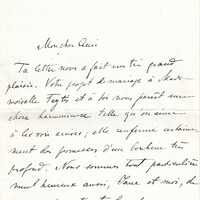 Mon cher Ami
Ta lettre nous a fait un très grand
plaisir. Votre projet de mariage à Made-
moiselle et à toi nous paraît une
chose harmonieuse telle qu'on aime
à les voir encore, elle enferme certaine-
ment des promesses d'un bonheur très
profond. Nous sommes tout particulière-
ment heureux aussi, Jane et moi, de